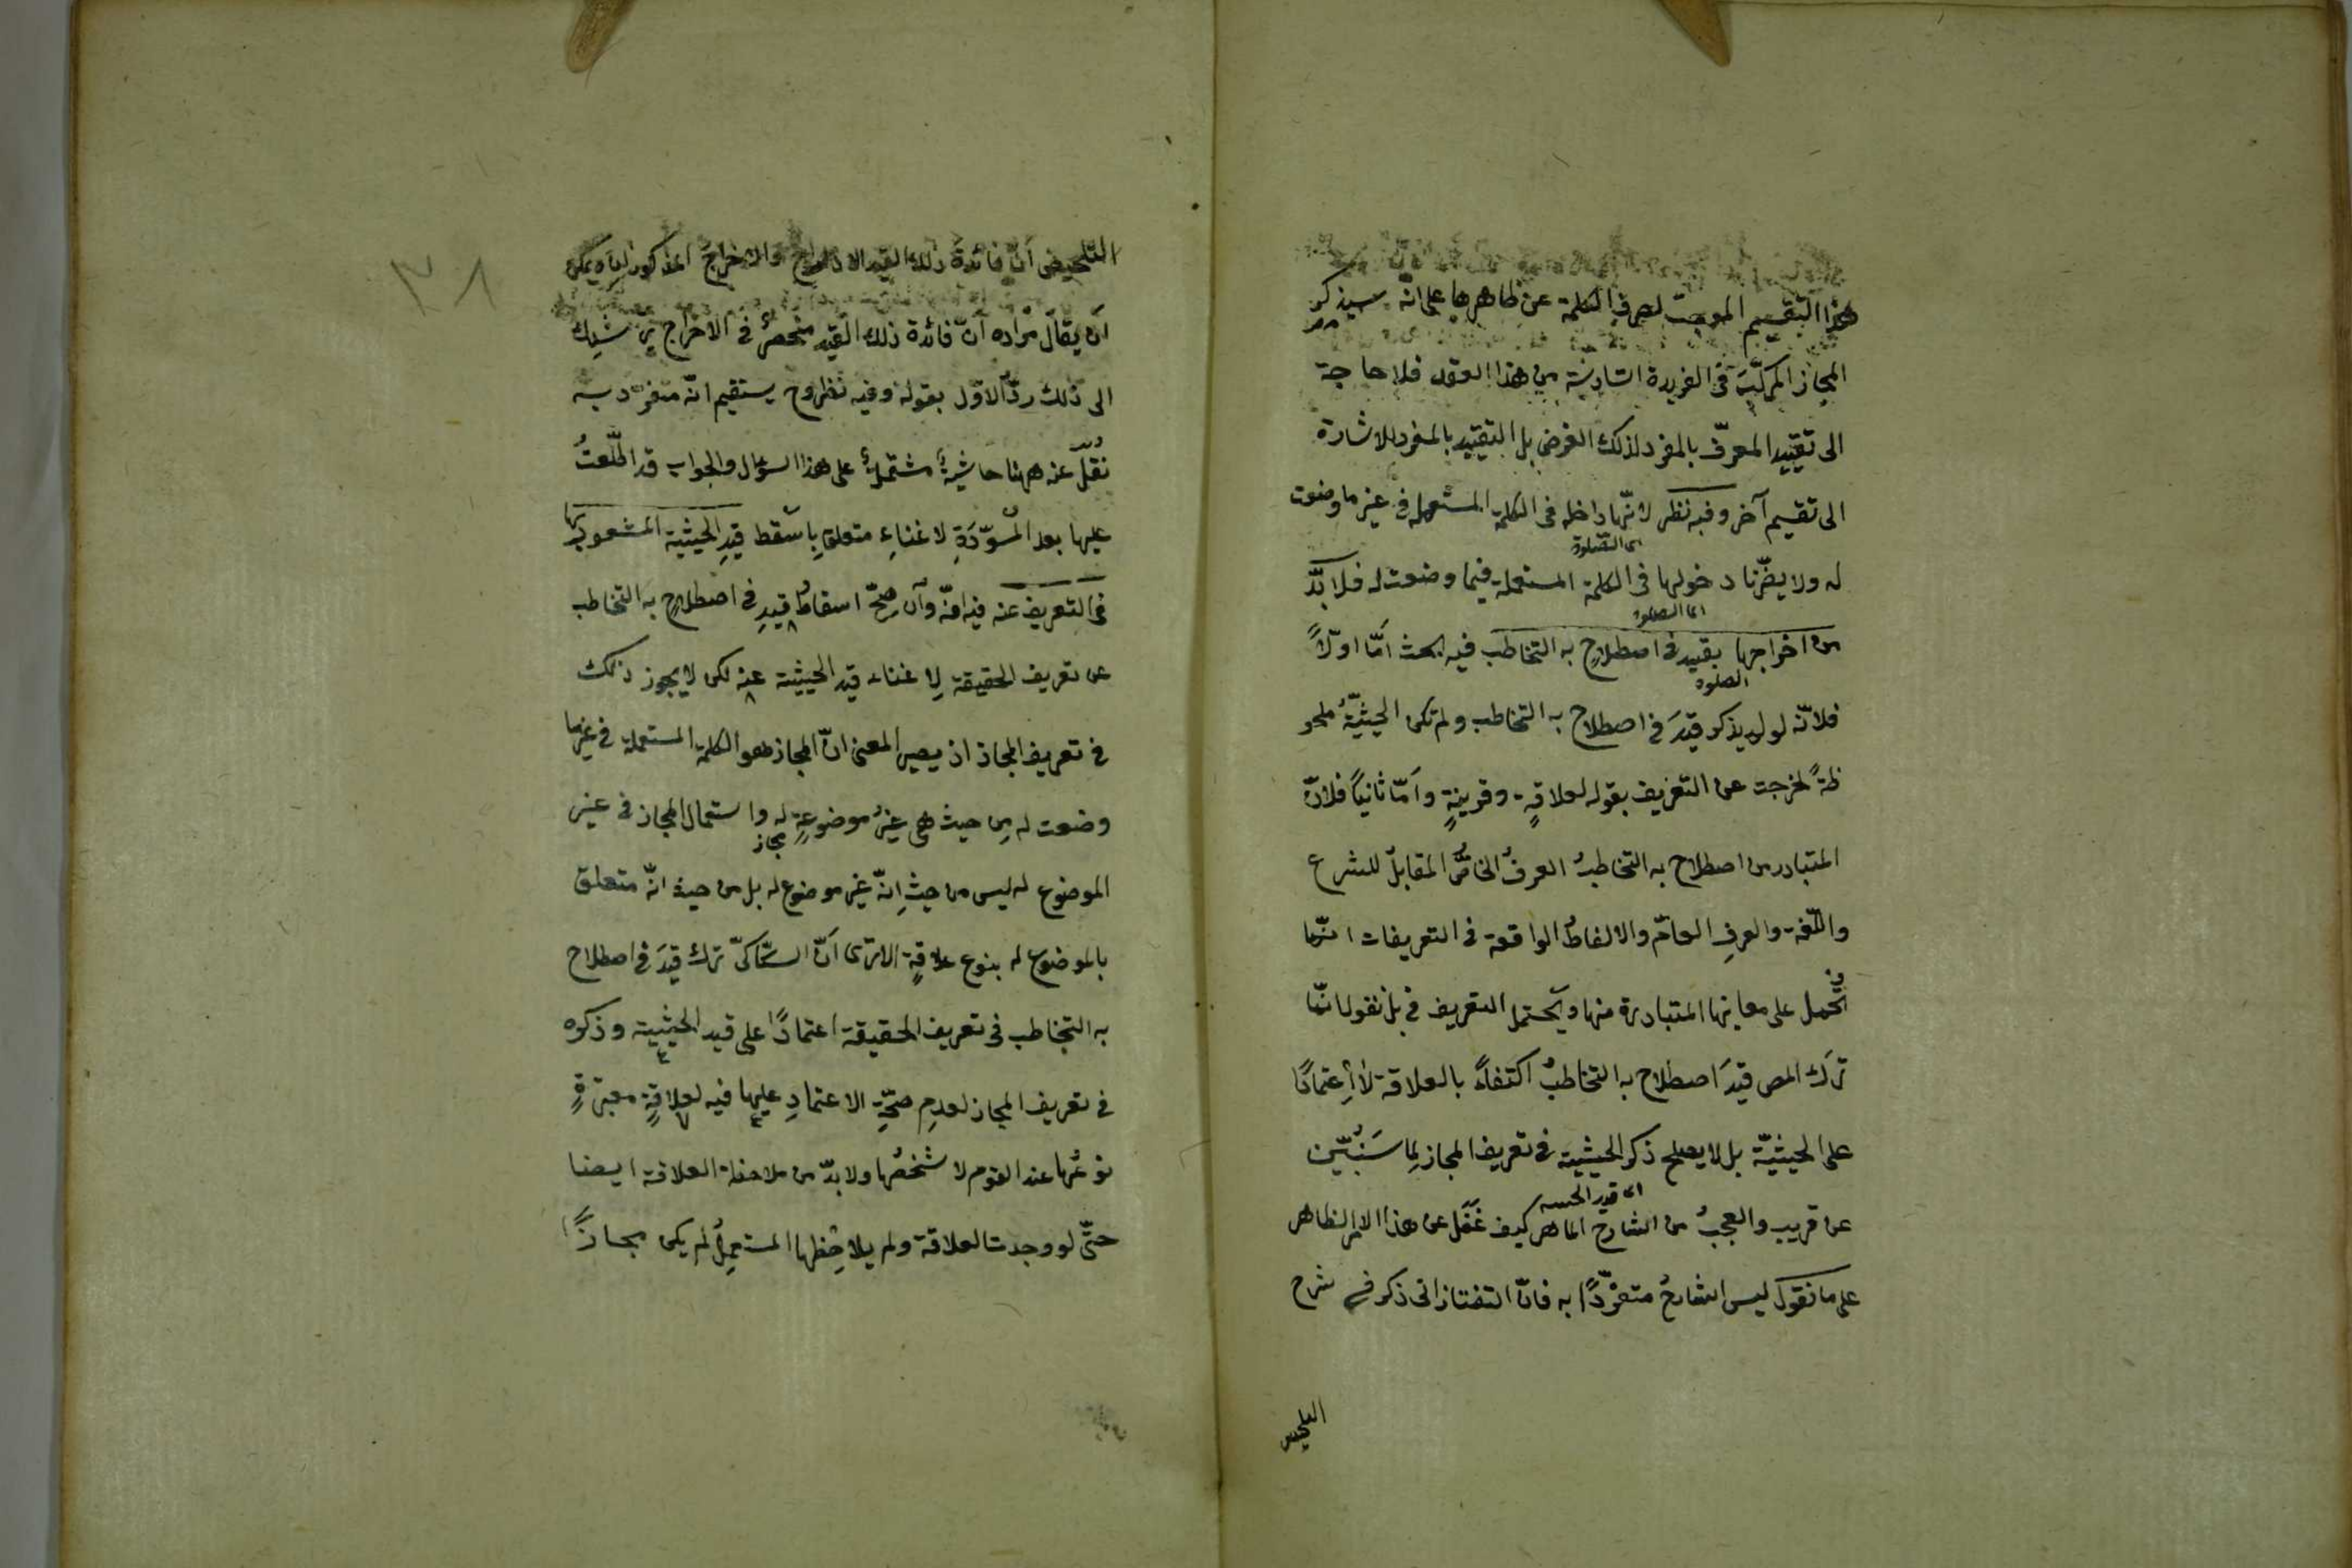 هذا التقسيم الموجب لصرف الكلمة عن ظاهرها على انّه سيذكر
المجاز المركّبَ فى الفريدة السّادسة من هذا العقد فلا حاجة
الى تقييد المعرّف بالمفرد لذلك الغرض بل التقييد بالمفرد للاشارة
الى تقسيم آخر وفيه نظر لانّها داخلة فى الكلمة المستعملة فى غير ما وضعت
اى الصّلوة
له ولا يضرّنا دخولها فى الكلمة المستعملة فيما وضعت له فلا بدّ
اى الصلوة
من اخراجها بقيد فى اصطلاحٍ به التخاطب فيه بحث امّا اوّلاً
الصلوة
فلانّه لو لم يذكر قيدَ فى اصطلاح به التخاطب ولم تكن الحيثيّةُ ملحو
ظةً لخرجت عن التعريف بقوله لعلاقةٍ وقرينةٍ وامّا ثانياً فلانّ
المتبادر من اصطلاح به التخاطبُ العرفُ الخاصُّ المقابلُ للشرع
واللّغة والعرفِ العامّ والالفاظُ الواقعة فى التعريفات انّما
تُحمل على معانيها المتبادرة منها ويحتمل التعريف فى بل نقول انّما
ترك المص قيدَ اصطلاح به التخاطبُ اكتفاءً بالعلاقة لا اِعتمادًا
على الحيثيّة بل لا يصلح ذكر الحيثية فى تعريف المجاز لِما سَنُبيّن
اى قيد الحيثية
عن قريب والعجبُ من الشارح الماهر كيف غَفَل عن هذا الامر الظاهر
على ما نقول ليس الشارحُ متفرّدًا به فانّ التفتازانى ذكر فى شرح
التلخيص
٣٨
التّلخيص اَنّ فائدةَ ذلك القيد الادخال والاخراجُ المذكوران ويمكن
اَن يقال مُراده اَنّ فائدة ذلك القيد منحصرٌ فى الاخراج يرشدك
الى ذلك ردّ الاوّل بقوله وفيه نظر وح يستقيم انّه متفرّد به
نُقل عنه ههنا حاشيةٌ مشتملةٌ على هذا السؤال والجواب قد اطّلعتُ
عليها بعد المُسوّدَةِ لاغناءِ متعلق بِاسْقط قيدِ الحيثية المشعور بها
فى التعريف عنه فيه انّه وان صحّ اسقاطُ قيدِ فى اصطلاحٍ به التخاطب
عن تعريف الحقيقة لِاغناء قيد الحيثية عنه لكن لا يجوز ذلك
فى تعريف المجاز اذ يصير المعنى انّ المجاز هو الكلمة المستعملة فى غير ما
وضعت له مِن حيث هى غيرُ موضوعةٍ له واستعمال المجاز فى غير
مجاز
الموضوع له ليس من حيث اِنّه غير موضوع له بل من حيث انّه متعلق
بالموضوع له بنوع علاقةٍ الا ترى اَنّ السّكّاكىّ ترك قيدَ فى اصطلاح
به التخاطب فى تعريف الحقيقة اعتمادًا على قيد الحيثية وذكره
فى تعريف المجاز لعدمِ صحّةِ الاعتمادِ عليها فيه لعلاقةٍ معتبرةٍ
نوعُها عند القوم لا شخصُها ولا بدّ من ملاحظة العلاقة ايضا
حتّى لو وجدت العلاقة ولم يلاحِظها المستعمِلُ لم يكن مجازًا